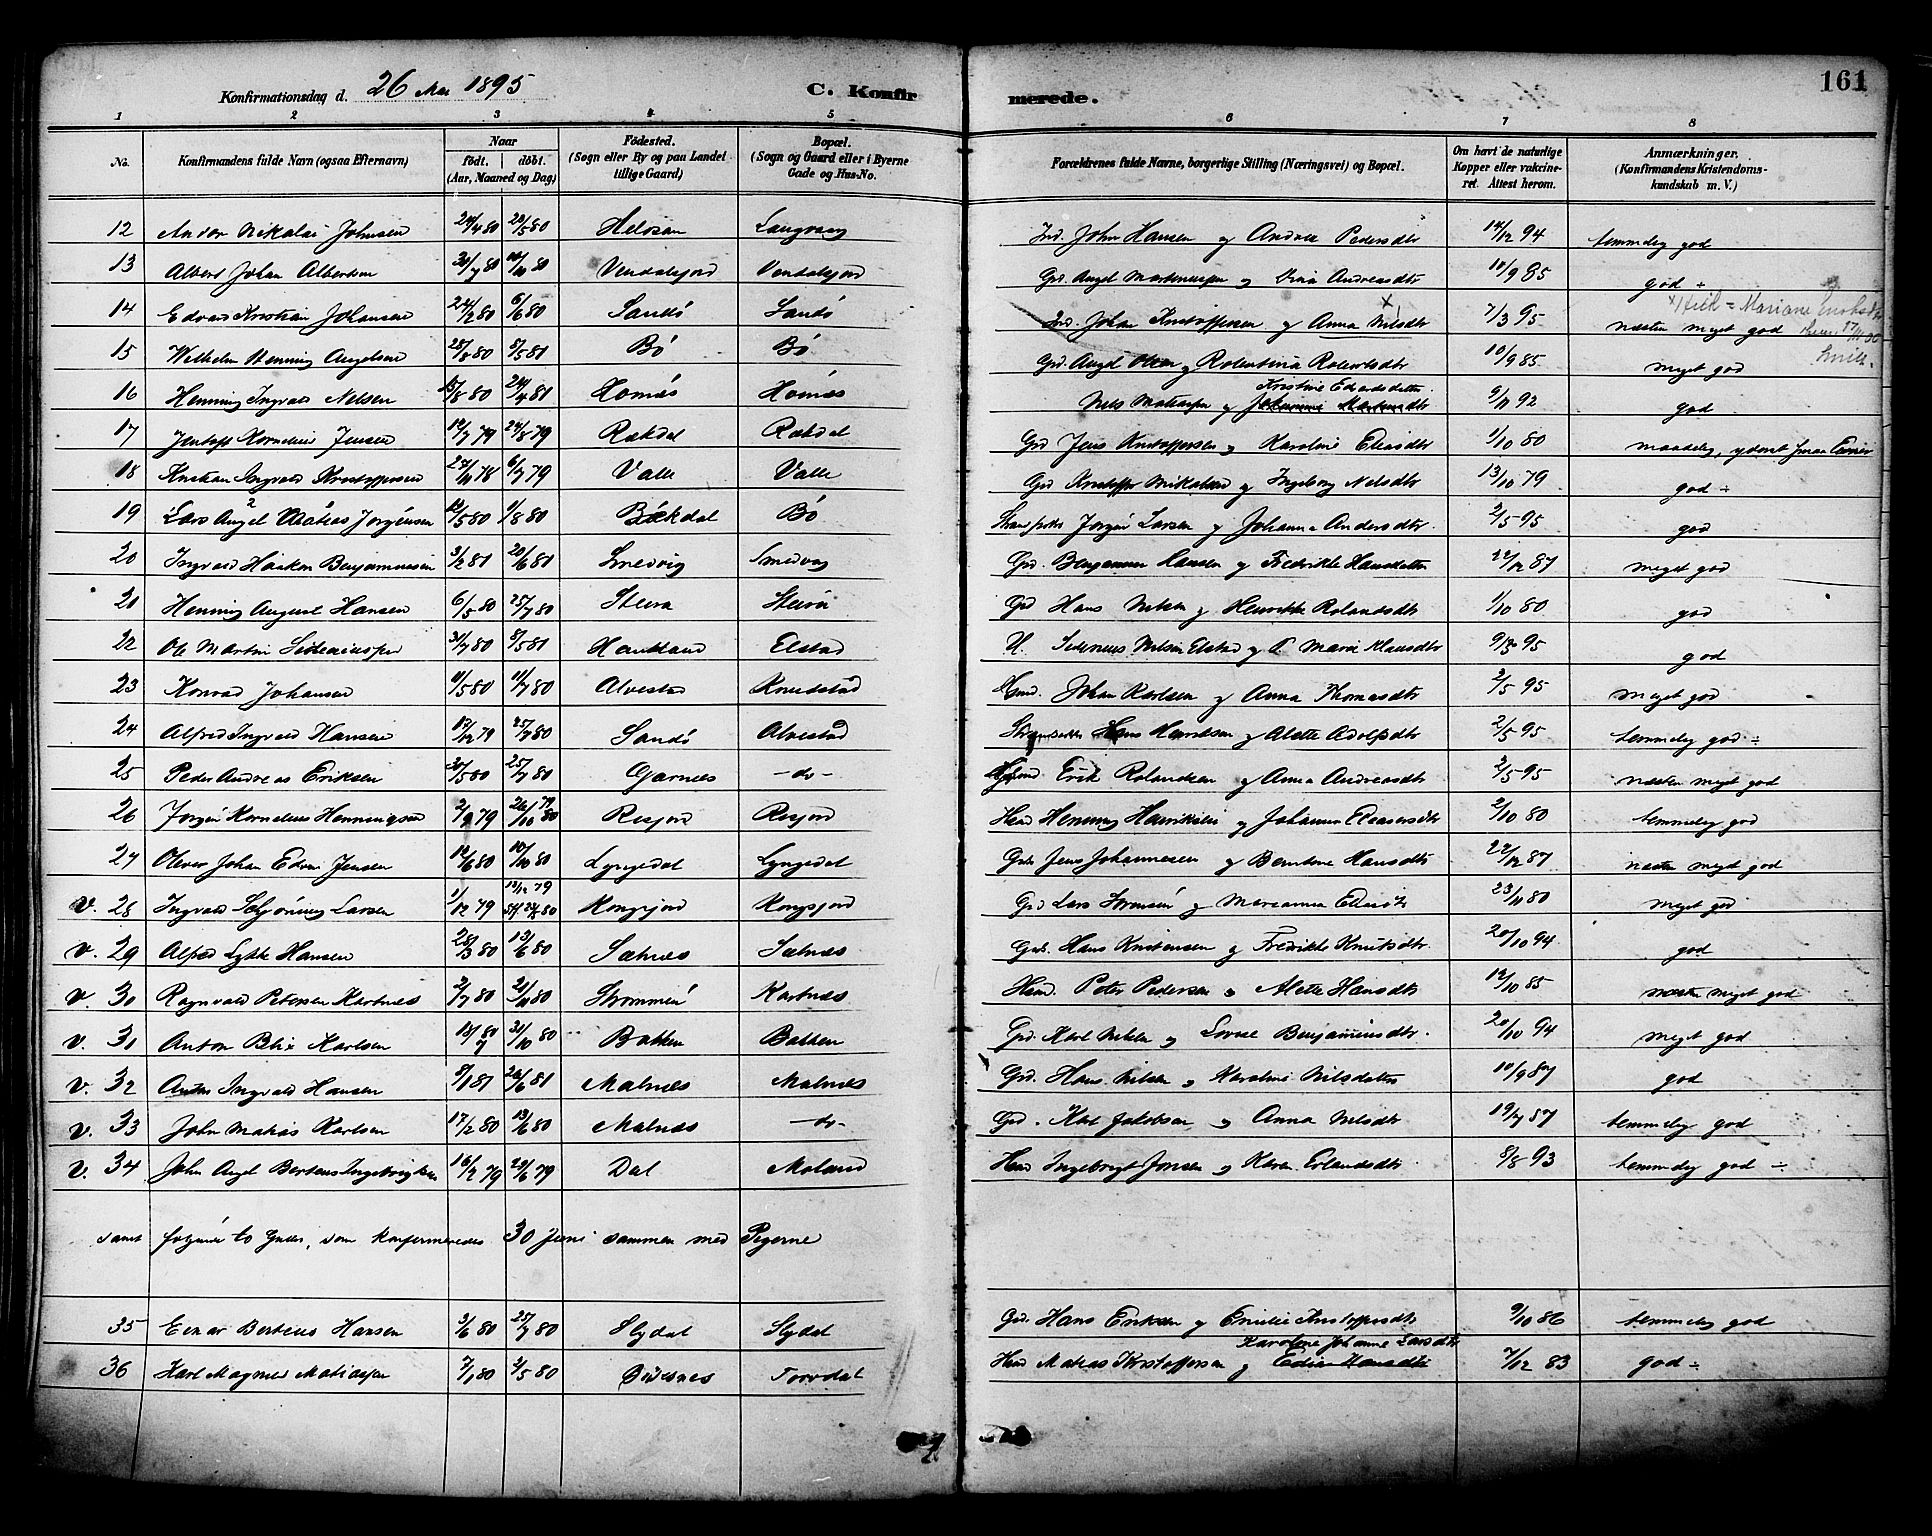 Konfirmationsdag d. 26 Mai 1895 C. Konfirmerede. 161
1 2 3 4 5 6 7 8
No. Konfirmandens fulde Navn (ogsaa Efternavn) Naar født. døbt. (Aar, Maaned og Dag) Fødested. (Sogn eller By og paa Landet tillige Gaard) Bopæl. (Sogn og Gaard eller i Byerne Gade og Hus-No. Forældrenes fulde Navne, borgerlige Stilling (Næringsvei) og Bopæl. Om havt de naturlige Kopper eller vakcineret. Attest herom. Anmærkninger. (Konfirmandens Kristendomskundskab m. V.)
12 Andor Nikolai Johnsen 24/4 80 23/5 80 Helosan Langvag Ind. John Hansen og Andrea Pedersdtr 14/12 94 temmelig god
13 Albert Johan Albertsen 30/7 80 10/10 80 Vendalsjord Vendalsjord Grd. Angel Martinussen og Andreasdtr 10/9 85 god ÷
14 Edvard Kristian Johansen 24/2 80 6/6 80 Sandö Sandö Ind. Johan Kristoffersen og Anna Nilsdtr x 7/3 95 næsten meget god
15 Wilhelm Henning Angelsen 28/8 80 8/5 81 Bö Bö Grd. Angel Olsen og Rolentina Robertsdtr 10/9 85 meget god
16 Henning Ingvald Nelsen 15/8 80 24/4 81 Homös Homös Nels Matiassen og Johanna Martensdtr Kristine Edvardsdatter 9/11 92 god
17 Jentoft Kornelius Jensen 12/7 79 24/8 79 Rækdal Rækdal Grd Jens Kristoffersen og Karoline Eliasdtr 1/10 80 maadelig,
18 Kristian Ingvald Kristoffersen 27/11 78 6/7 79 Valle Valle Grd Kristoffer Mikalsen og Ingeborg Nelsdtr 13/10 79 god ÷
19 Lars Angel Matias Jørgensen 12/5 80 1/8 80 Bækdal Bö Jørgen Larsen og Johanna Andersdtr. 2/5 95 god
20 Ingvald Haakon Benjaminsen 3/2 81 20/6 81 Smedvig Smedvag Grd. Benjamin Hansen og Fredrikke Hansdatter 22/12 87 meget god
21 Henning August Hansen 6/5 80 25/7 80 Steira Steira Grd Hans Nelsen og Henrikke Rolandsdtr 1/10 80 god
22 Ole Martin 31/7 80 8/5 81 Haukland Elstad U. Nelsen Elstad og P Marie Hansdtr 95 god
23 Konrad Johansen 11/5 80 11/7 80 Alvestad Knudstad Hmd. Johan Karlsen og Anna Thomasdtr 2/5 95 meget god
24 Alfred Ingvald Hansen 12/12 79 25/7 80 Sandö Alvestad Hans Henriksen og Alette Adolfsdtr 2/5 95 temmelig god ÷
25 Peder Andreas Eriksen 30/5 80 25/7 80 Garnes — do — Erik Rolandsen og Anna Andreasdtr 2/5 95 næsten meget god
26 Jørgen Kornelius Henningsen 2/9 79 26/10 79 80 Resjord Resjord Hmd Henning Henriksen og Johanna Eleasersdtr 2/10 80 temmelig god
27 Oliver Johan Edvin Jensen 12/6 80 10/10 80 Lyngedal Lyngedal Grd. Jens Johannesen og Berntine Hansdtr 22/12 87 næsten meget god
v. 28 Ingvald Schjøning Larsen 1/12 79 13/12 79 80 Kongsjord Kongsjord Grd Lars Sørensen og Marianna 23/11 80 meget god
v. 29 Alfred Lykke Hansen 28/3 80 13/6 80 Sælnæs Sælnæs Grd. Hans Kristensen og Fredrikke Knutsdtr. 20/10 94 god
v. 30 Ragnvald Petersen Kartnes 2/7 80 21/11 80 Strømmen Kartnæs Hmd. Peter Pedersen og Alette Hansdtr 12/10 85 næsten meget god
v. 31 Anton Blix Karlsen 18/7 80 31/10 80 Bakken Bakken Grd. Karl Nelsen og Lovise Benjaminsdtr. 20/10 94 meget god
v. 32 Ingvald Hansen 81 26/6 81 Malnæs Malnæs Grd. Hans Nilsen og Karoline Nilsdatter 10/9 87 god
v. 33 John Matias Karlsen 17/2 80 13/6 80 Malnæs — do — Grd. Karl Jakobsen og Anna Nelsdtr 19/7 87 temmelig god
v. 34 John Angel Berteus Ingebrigtsen 16/2 79 29/6 79 Dal Moland Hmd Ingebrigt Jonsen og Karen Erlandsdtr 8/8 93 temmelig god ÷
samt følgende to Gutter, som konfirmeredes 30 Juni sammen med Pigerne
35 Einar Berteus Hansen 3/6 80 25/7 80 Slydal Slydal Grd. Hans Eriksen og Emilie Kristoffersdtr 9/10 86 temmelig god
36 Karl Magnus Matiassen 7/1 80 2/5 80 Torvdal Hmd Matias Kristoffersen og Edie Hansdtr Karoline Johanne Larsdtr 7/12 83 god ÷